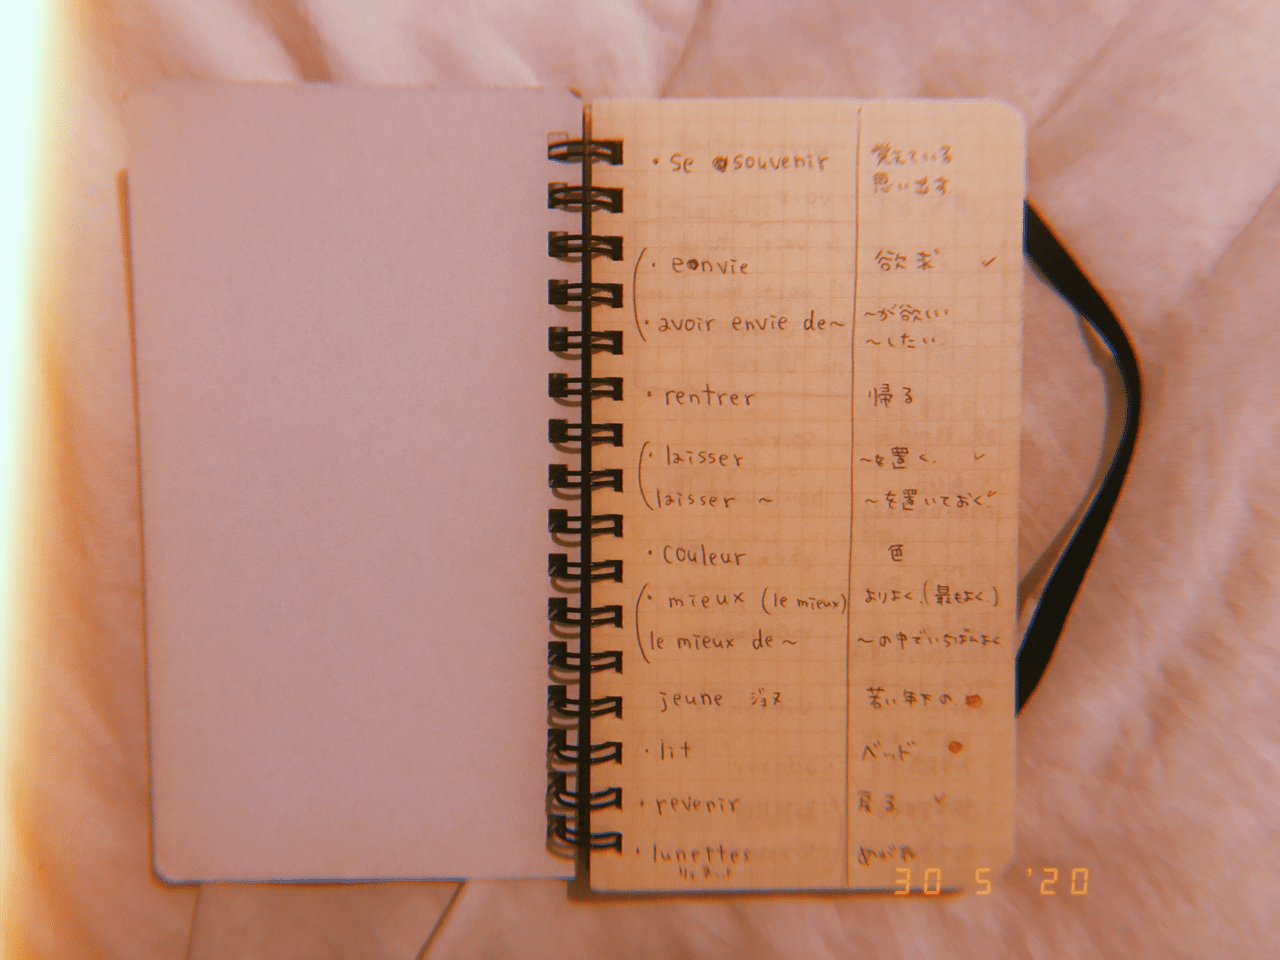 ・se souvenir 覚えている
思い出す
・envie 欲求 ✓
・avoir envie de~ ~が欲しい
~したい
・rentrer 帰る
・laisser ~を置く. ✓
laisser ~ ~を置いておく ✓
・couleur 色
・mieux (le mieux) よりよく.(最もよく.)
le mieux de ~ ~の中でいちばんよく
jeune ジョヌ 若い 年下の
・lit ベッド
・revenir 戻る ✓
・lunettes めがね
リュネット
30 5 '20